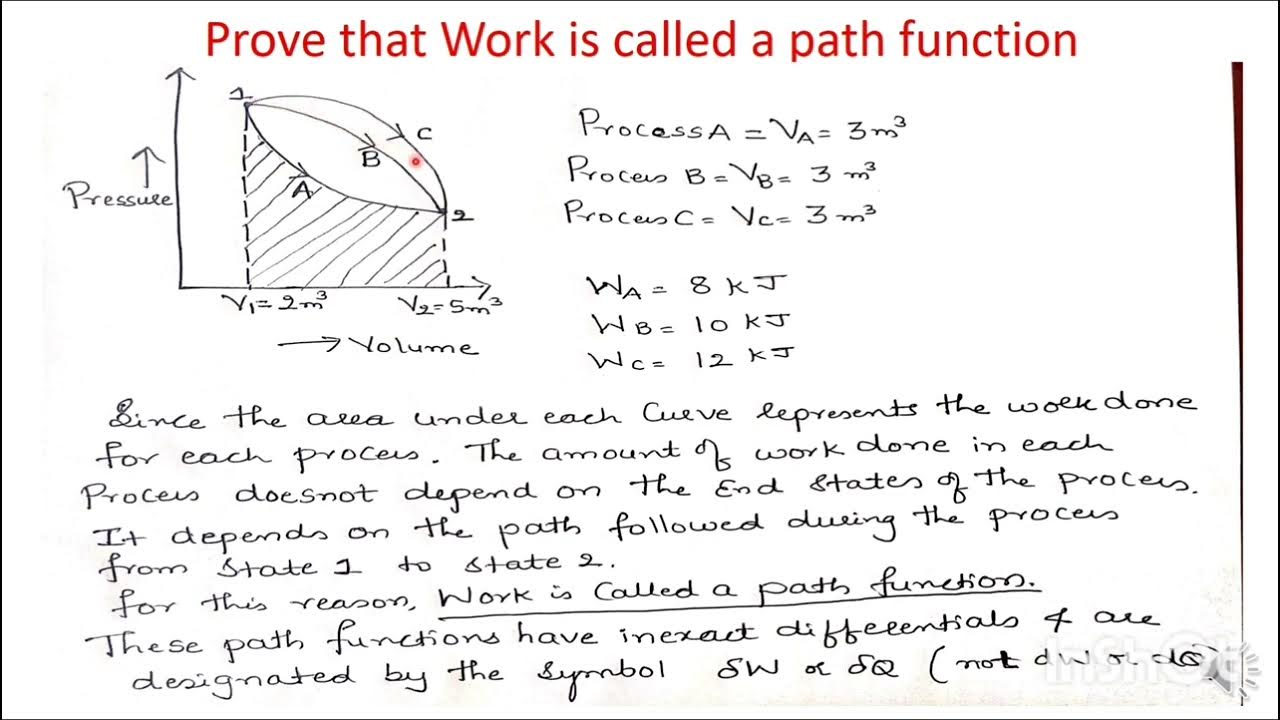 Prove that Work is called a path function
1
C
B
A
2
Pressure
V1 = 2m³
V2 = 5m³
Volume
Process A = VA = 3m³
Process B = VB = 3 m³
Process C = VC = 3 m³
WA = 8 kJ
WB = 10 KJ
WC = 12 kJ
Since the area under each Curve represents the work done
for each process. The amount of work done in each
Process doesnot depend on the End states of the process.
It depends on the path followed during the process
from state 1 to state 2.
for this reason, Work is Called a path function.
These path functions have inexact differentials & are
designated by the symbol δW or δQ (not dW or dQ)
InShOt